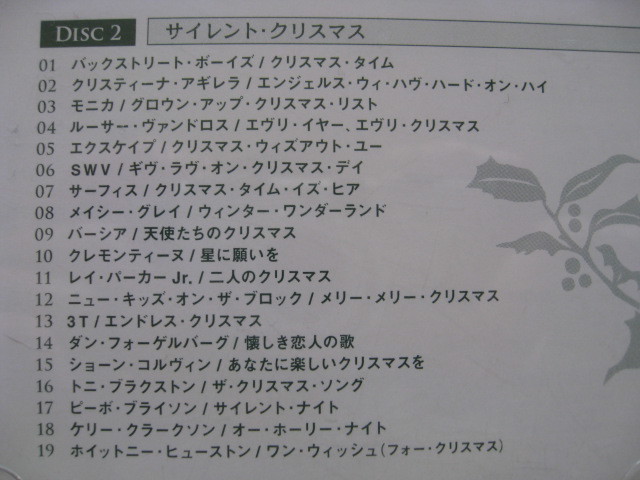 DISC 2 サイレント・クリスマス
01 バックストリート・ボーイズ / クリスマス・タイム
02 クリスティーナ・アギレラ / エンジェルス・ウィ・ハヴ・ハード・オン・ハイ
03 モニカ / グロウン・アップ・クリスマス・リスト
04 ルーサー・ヴァンドロス / エヴリ・イヤー、エヴリ・クリスマス
05 エクスケイプ / クリスマス・ウィズアウト・ユー
06 SWV / ギヴ・ラヴ・オン・クリスマス・デイ
07 サーフィス / クリスマス・タイム・イズ・ヒア
08 メイシー・グレイ / ウィンター・ワンダーランド
09 バーシア / 天使たちのクリスマス
10 クレモンティーヌ / 星に願いを
11 レイ・パーカー Jr. / 二人のクリスマス
12 ニュー・キッズ・オン・ザ・ブロック / メリー・メリー・クリスマス
13 3T / エンドレス・クリスマス
14 ダン・フォーゲルバーグ / 懐しき恋人の歌
15 ショーン・コルヴィン / あなたに楽しいクリスマスを
16 トニ・ブラクストン / ザ・クリスマス・ソング
17 ピーボ・ブライソン / サイレント・ナイト
18 ケリー・クラークソン / オー・ホーリー・ナイト
19 ホイットニー・ヒューストン / ワン・ウィッシュ(フォー・クリスマス)